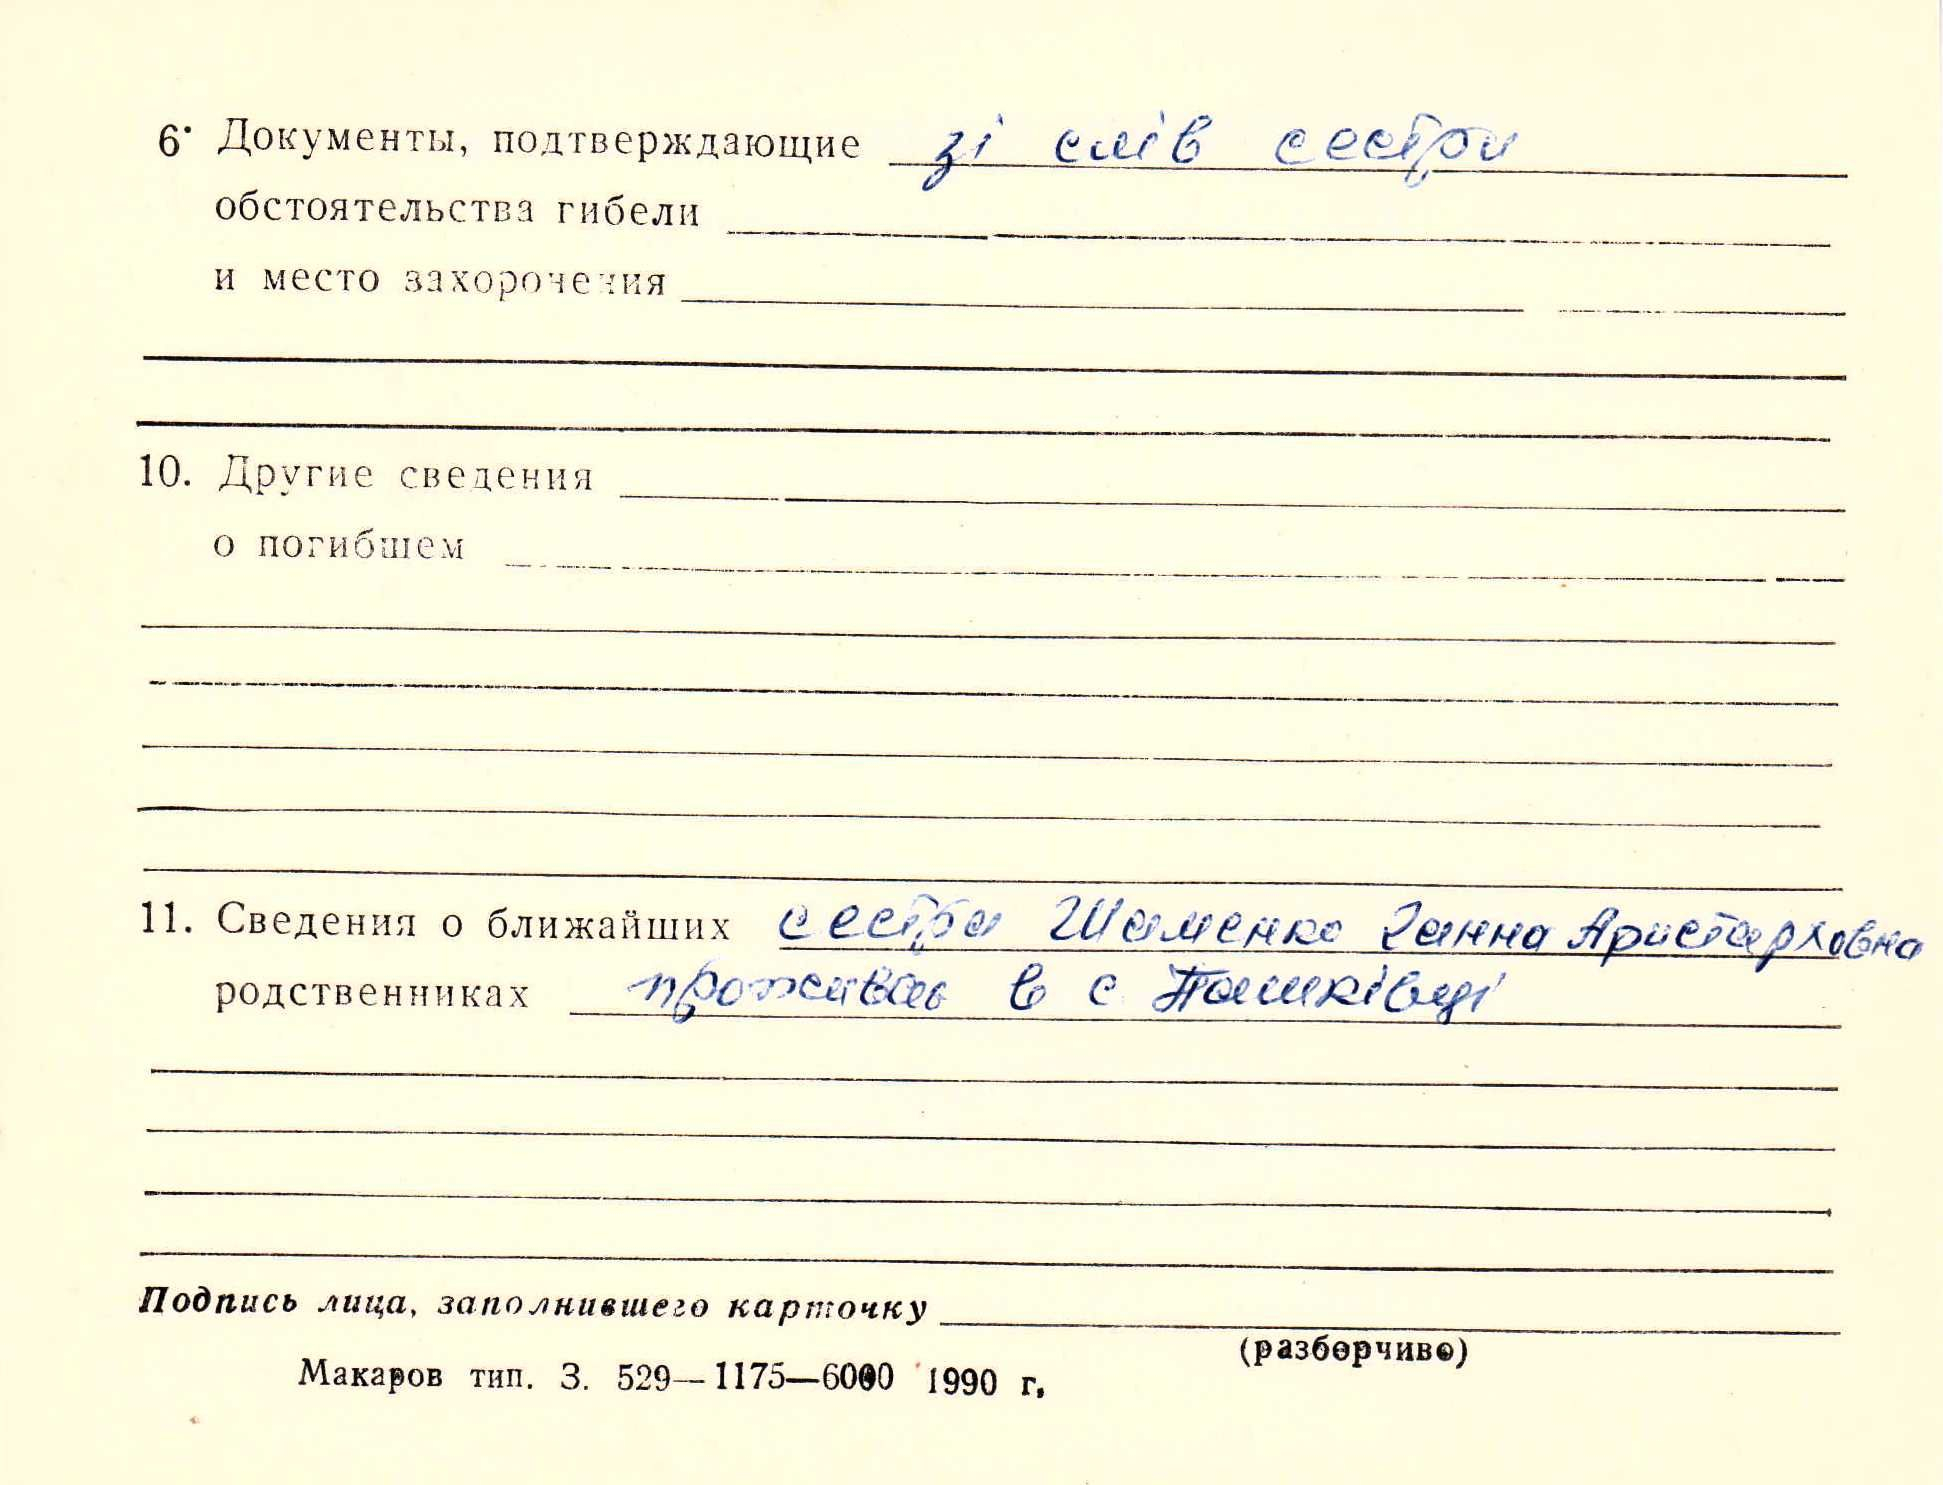 6. Документы, подтверждающие зі слів сестри
обстоятельства гибели
и место захоронения
10. Другие сведения
о погибшем
11. Сведения о ближайших сестра Шаменко Ганна Аристарховна
родственниках прожива в с Пашківці
Подпись лица, заполнившего карточку
(разборчиво)
Макаров тип. З. 529—1175—6000 1990 г.